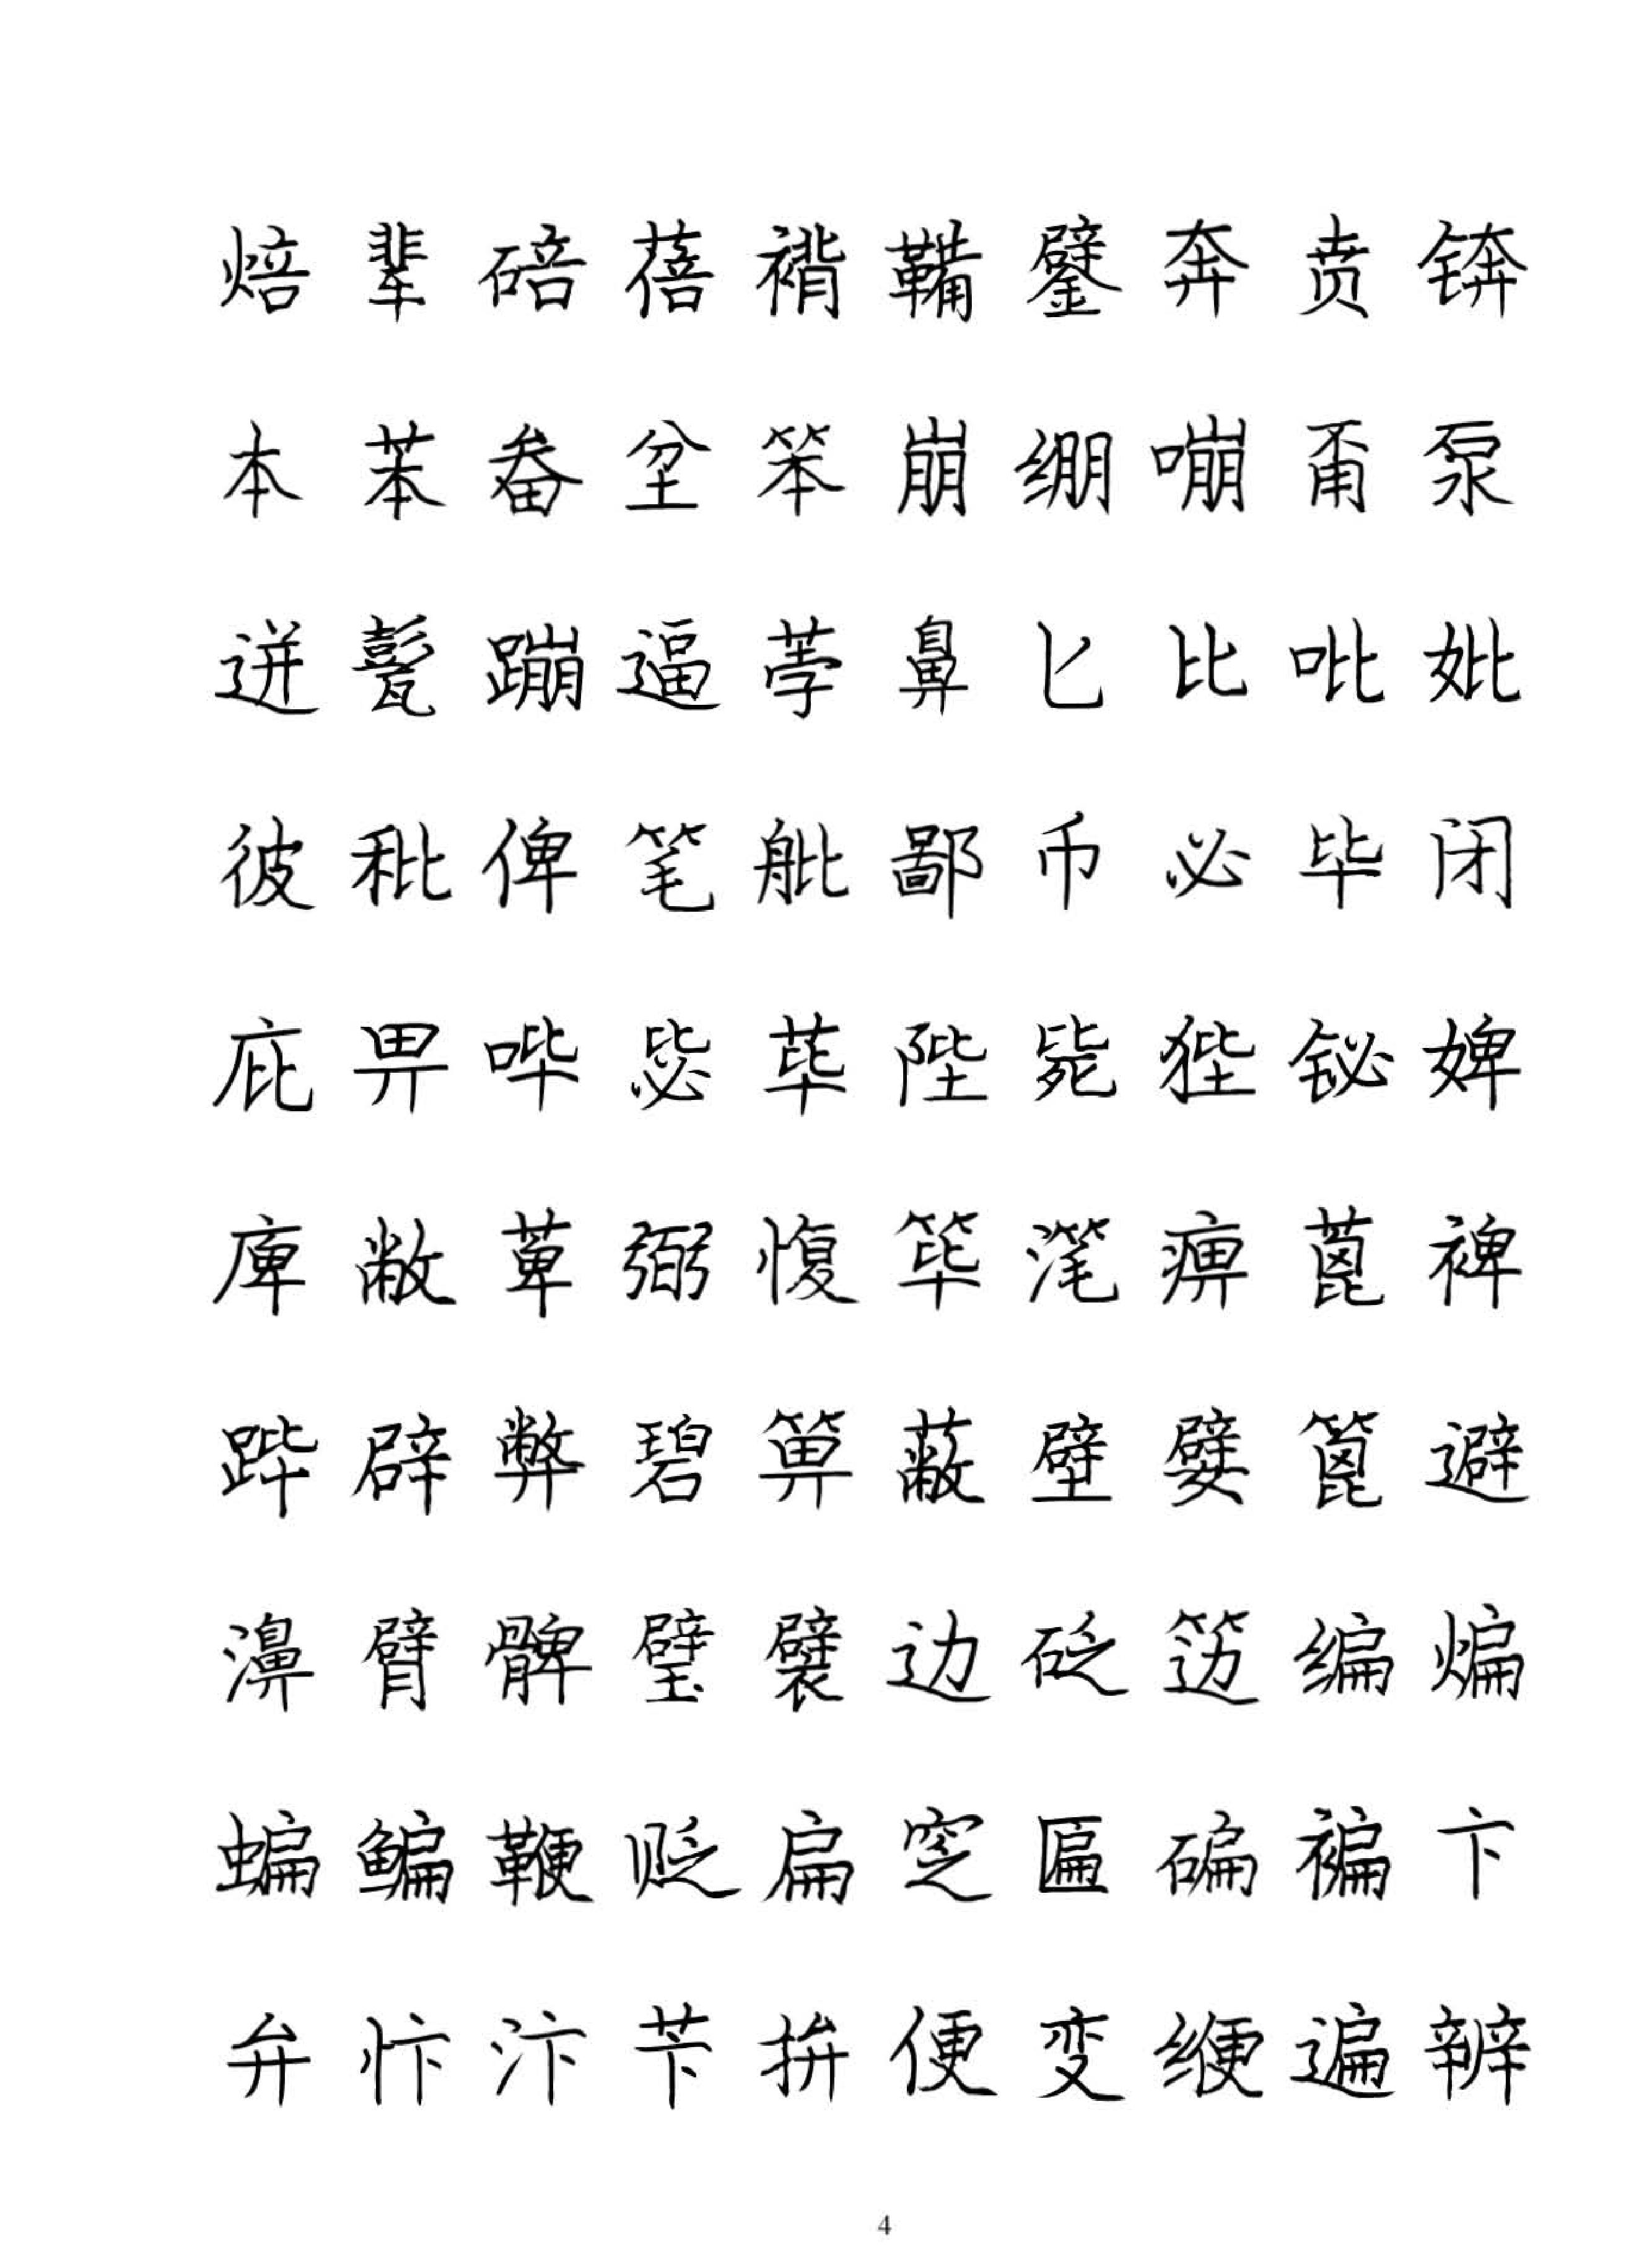 焙 辈 碚 蓓 褙 鞴 鐾 奔 贲 锛
本 苯 畚 坌 笨 崩 绷 嘣 甭 泵
迸 甏 蹦 逼 荸 鼻 匕 比 吡 妣
彼 秕 俾 笔 舭 鄙 币 必 毕 闭
庇 畀 哔 毖 荜 陛 毙 狴 铋 婢
庳 敝 萆 弼 愎 筚 滗 痹 蓖 裨
跸 辟 弊 碧 箅 蔽 壁 嬖 篦 避
濞 臂 髀 璧 襞 边 砭 笾 编 煸
蝙 鳊 鞭 贬 扁 窆 匾 碥 褊 卞
弁 忭 汴 苄 拚 便 变 缏 遍 辨
4